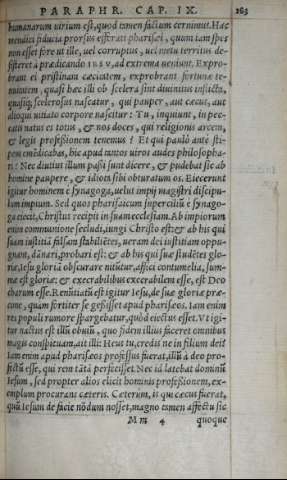 PARAPHR. CAP. IX. 263
humanarum uirium est, quod tamen factum cernimus. Hac
mendici fiducia prorsus efferati pharisæi, quum iam spes
non esset fore ut ille, uel corruptus, uel metu territus de-
sisteret à prædicando IESV, ad extrema ueniunt. Expro-
brant ei pristinam cæcitatem, exprobrant fortunæ te-
nuitatem, quasi hæc illi ob scelera sint diuinitus inflicta,
quasiq; scelerosus nascatur, qui pauper, aut cæcus, aut
alioqui uitiato corpore nascitur: Tu, inquiunt, in pec-
catis natus es totus, & nos doces, qui religionis arcem,
& legis professionem tenemus? Et qui paulò ante sti-
pem emdicabas, hic apud tantos uiros audes philosopha-
ri? Nec diutius illum passi sunt dicere, & pudebat sic ab
homine paupere, & idiota sibi obturatum os. Eiecerunt
igitur hominem è synagoga, uelut impij magistri discipu-
lum impium. Sed quos pharisaicum supercilium è synago-
ga eiicit, Christus recipit in suam ecclesiam. Ab impiorum
enim communione secludi, iungi Christo est: & ab his qui
suam iustitiā falsam stabiliētes, ueram dei iustitiam oppu-
gnant, dānari, probari est: & ab his qui suæ studētes glo-
riæ, Iesu gloriā obscurare nitūtur, affici contumelia, sum-
mæ est gloriæ: & execrabilibus execrabilem esse, est Deo
charum esse. Renūtiatū est igitur Iesu, de suæ gloriæ præ-
cone, quàm fortiter se gessisset apud pharisæos. Iam enim
res populi rumore spargebatur, quòd eiectus esset. Vt igi-
tur nactus est illū obuiū, quo fidem illius faceret omnibus
magis conspicuam, ait illi: Heus tu, credis ne in filium dei?
Iam enim apud pharisæos professus fuerat, illū à deo pro-
fectū esse, qui rem tātā perfecisset. Nec id latebat dominū
Iesum, sed propter alios elicit hominis professionem, ex-
emplum procurans cæteris. Cæterum, is qui cæcus fuerat,
quū Iesum de facie nōdum nosset, magno tamen affectu sic
Mm 4 quoque